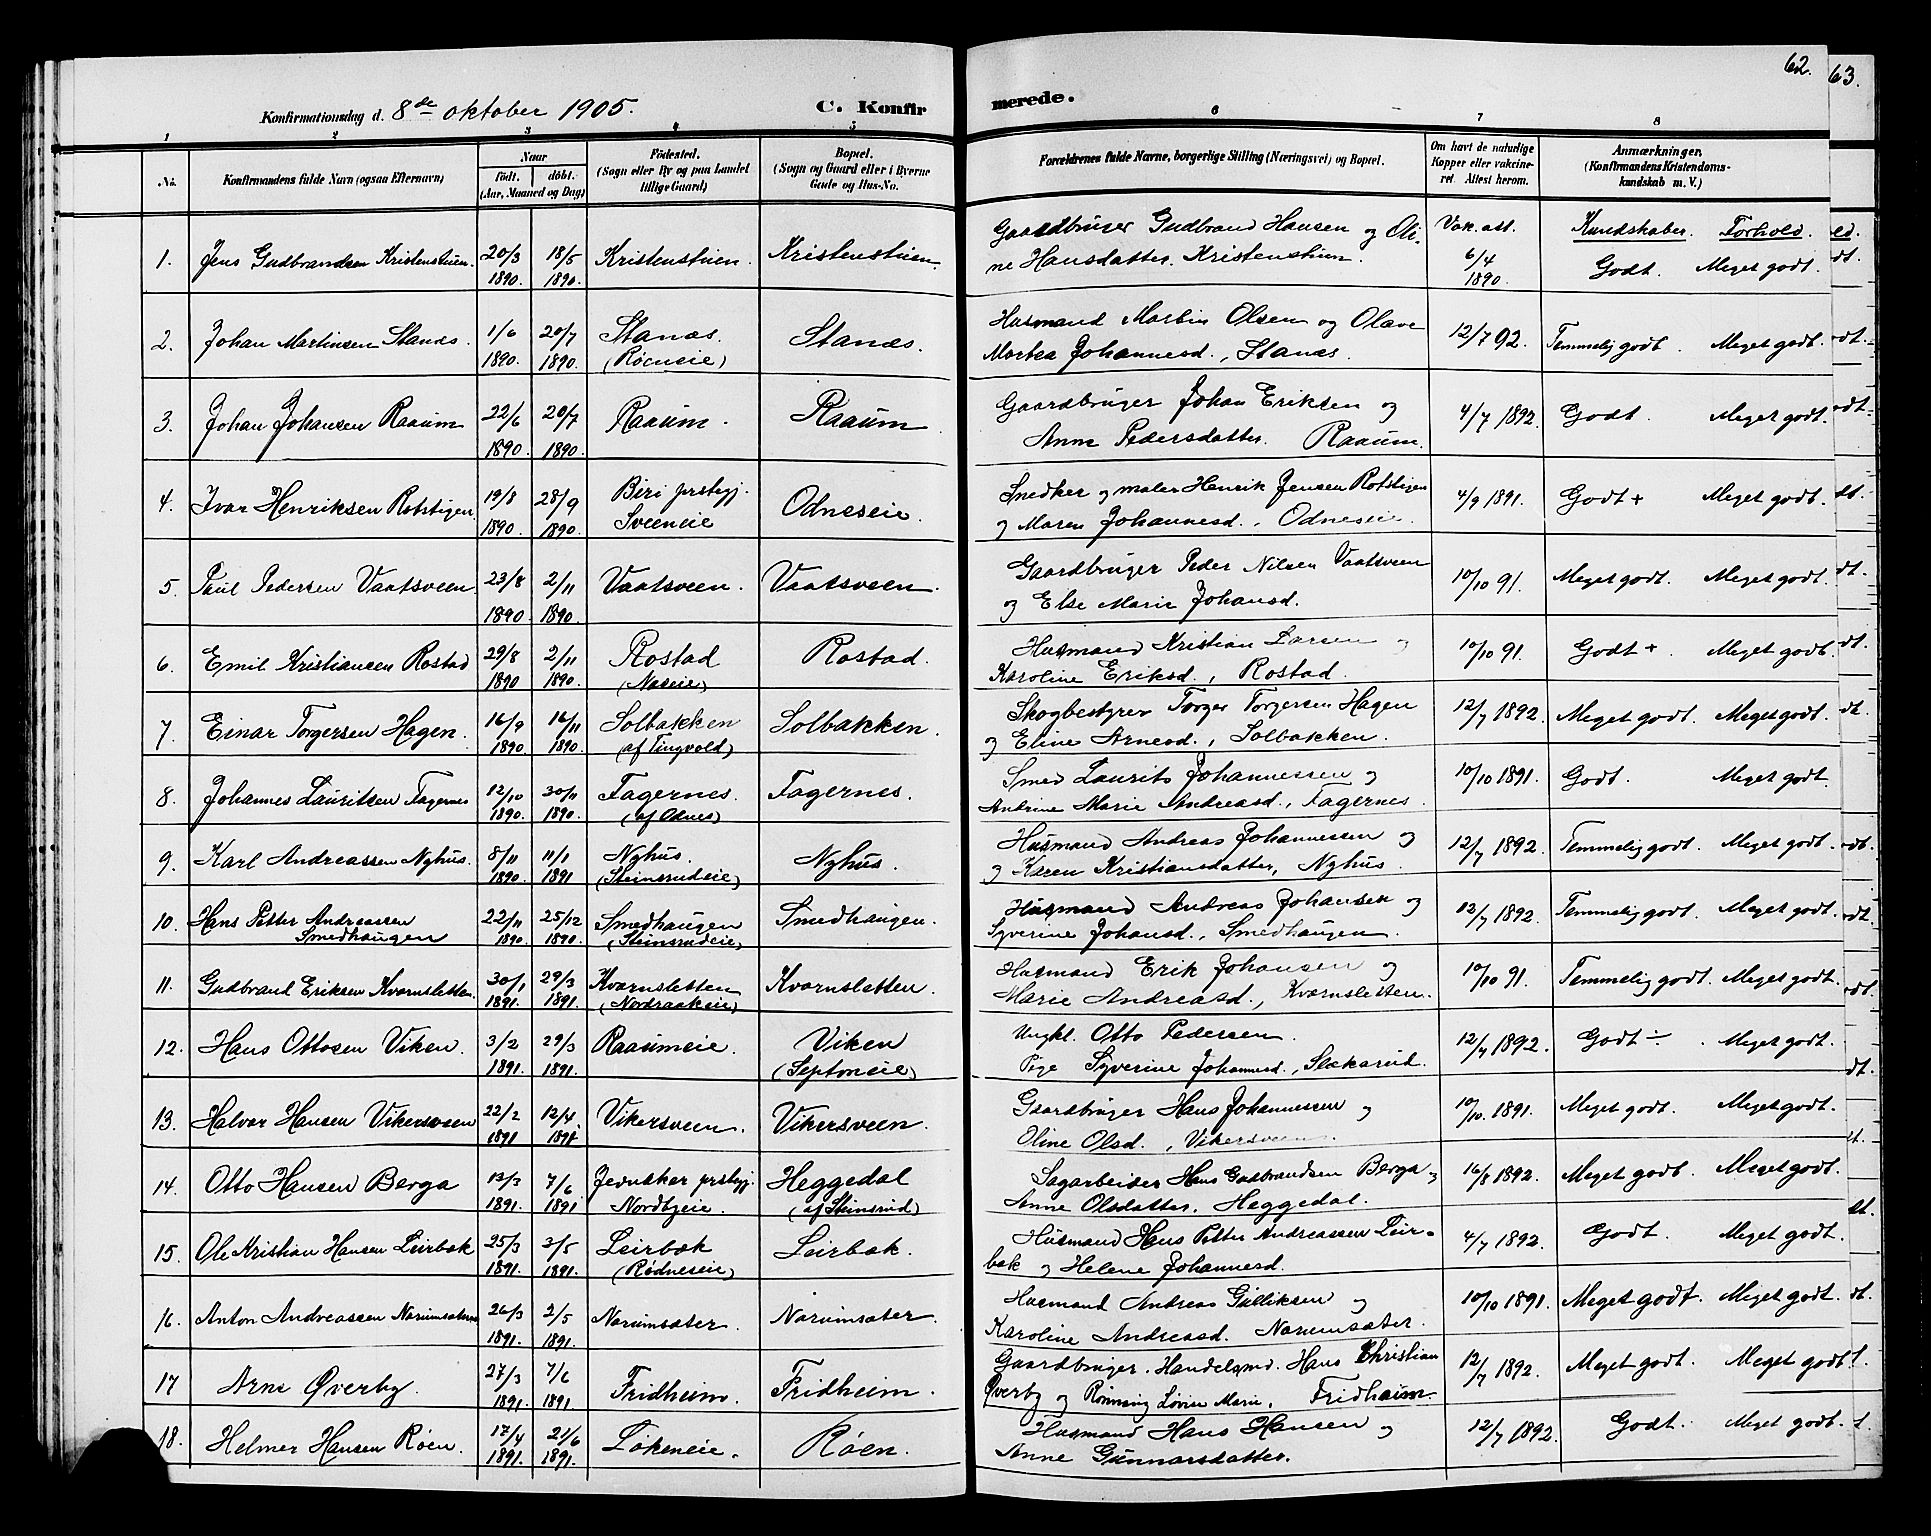 62. 63.
Konfirmationsdag d. 8de oktober 1905. C. Konfirmerede.
1 2 3 4 5 6 7 8
No. Konfirmandens fulde Navn (ogsaa Efternavn) Naar födt. döbt. (Aar, Maaned og Dag) Födested. (Sogn eller By og paa Landet tillige Gaard) Bopæl. (Sogn og Gaard eller i Byerne Gade og Hus-No. Forældrenes fulde Navne, borgerlige Stilling (Næringsvei) og Bopæl. Om havt de naturlige Kopper eller vakcineret Attest herom. Anmærkninger, (Konfirmandens Kristendomskundskab m. V.)
Vak. att. Kundskaber. Forhold.
1. Jens Gudbrandsen Kristenstuen. 20/3 1890. 18/5 1890. Kristenstuen. Kristenstuen. Gaardbruger Gudbrand Hansen og Oline Hansdatter. Kristenstuen. 6/4 1890. Godt. Meget godt.
2. Johan Martinsen Stanæs. 1/6 1890. 20/7 1890. Stanæs. (Röeneie) Stanæs. Husmand Martin Olsen og Olave Martea Johannesd., Stanæs. 12/7 92. Temmelig godt. Meget godt.
3. Johan Johansen Raaum 22/6 1890. 20/7 1890. Raaum. Raaum. Gaardbruger Johan Eriksen og Anne Pedersdatter. Raaum. 4/7 1892. Godt. Meget godt.
4. Ivar Henriksen Rotstigen. 19/8 1890. 28/9 1890. Biri prstegj. Sveeneie Odneseie. Snedker og maler Henrik Jensen Rotstigen og Maren Johannesd., Odneseie. 4/9 1891. Godt + Meget godt.
5. Paul Pedersen Vaatsveen 23/8 1890. 2/11 1890. Vaatsveen. Vaatsveen. Gaardbruger Peder Nilsen Vaatsveen og Else Marie Johansd. 10/10 91. Meget godt. Meget godt.
6. Emil Kristiansen Rostad 29/8 1890 2/11 1890. Rostad (Næseie) Rostad. Husmand Kristian Larsen og Karoline Eriksd., Rostad. 10/10 91. Godt +. Meget godt.
7. Einar Torgersen Hagen. 16/9 1890. 16/11 1890. Solbakken (af Tingvold) Solbakken. Skogbestyrer Torger Torgersen Hagen og Eline Arnesd., Solbakken. 12/7 1892. Meget godt. Meget godt.
8. Johannes Lauritsen Fagernes 12/10 1890. 30/11 1890. Fagernes. (af Odnes) Fagernes. Smed Laurits Johannessen og Andrine Marie Andreasd., Fagernes. 10/10 1891. Godt. Meget godt.
9. Karl Andreassen Nyhus. 8/11 1890. 11/1 1891 Nyhus. (Steinsrudeie) Nyhus. Husmand Andreas Johannessen og og Karen Kristiansdatter, Nyhus. 12/7 1892. Temmelig godt. Meget godt.
10. Hans Petter Andreassen Smedhaugen 22/11 1890. 25/12 1890. Smedhaugen (Steinsrudeie) Smedhaugen. Husmand Andreas Johansen og Syverine Johansd., Smedhaugen. 12/7 1892. Temmelig godt. Meget godt.
11. Gudbrand Eriksen Kvernsletten. 30/1 1891. 29/3 1891. Kvernsletten (Nordraakeie) Kvernsletten. Husmand Erik Johansen og Marie Andreasd., Kvernsletten. 10/10 91. Temmelig godt. Meget godt.
12. Hans Ottosen Viken. 3/2 1891. 29/3 1891. Raaumeie. Viken (Septoneie) Ungkl. Otto Pedersen. Pige Syverine Johannesd., Slækerud. 12/7 1892. Godt ÷. Meget godt.
13. Halvor Hansen Vikersveen 22/2 1891 12/4 1891. Vikersveen. Vikersveen. Gaardbruger Hans Johannessen og Oline Olsd., Vikersveen. 10/10. 1891. Meget godt. Meget godt.
14. Otto Hansen Berga 13/3 1891. 7/6 1891 Jevnaker prstgj. Nordbyeie. Heggedal (af Steinsrud) Sagarbeider Hans Gudbrandsen Berga og Anne Olsdatter. Heggedal. 16/8 1892. Meget godt. Meget godt.
15. Ole Kristian Hansen Leirbæk 25/3 1891. 3/5 1891. Leirbæk (Rödneseie) Leirbæk. Husmand Hans Petter Andreassen Leirbæk og Helene Johannesd. 4/7 1892. Godt. Meget godt.
16. Anton Andreassen Narumsæter 26/3 1891. 2/5 1891. Narumsæter. Narumsæter. Husmand Andreas Gulliksen og Karoline Andreasd. Narumsæter. 10/10 1891. Meget godt. Meget godt.
17 Arne Øverby. 27/3 1891. 7/6 1891. Fridheim. Fridheim. Gaardbruger. Handelsmd. Hans Christian Øverby og Rønnaug Lovise Marie, Fridheim. 12/7 1892. Meget godt. Meget godt.
18. Helmer Hansen Röen. 17/4 1891. 21/6 1891. Lökeneie. Röen. Husmand Hans Hansen og Anne Gunnarsdatter. 12/7 1892. Godt. Meget godt.